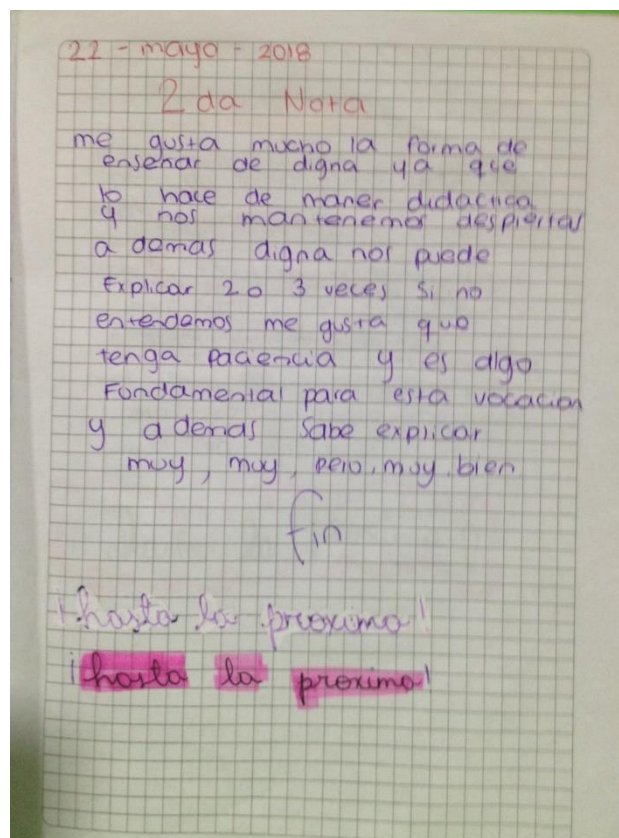 22 - mayo - 2018
2 da Nota
me gusta mucho la forma de
enseñar de digna ya que
lo hace de maner didactica
y nos mantenemos despierras
a demas digna nos puede
Explicar 2 o 3 veces si no
entendamos me gusta que
tenga paciencia y es algo
Fondamental para esta vocacion
y a demas sabe explicar
muy, muy, pero, muy, bien
fin
¡hasta la proximo!
¡hasta la proximo!